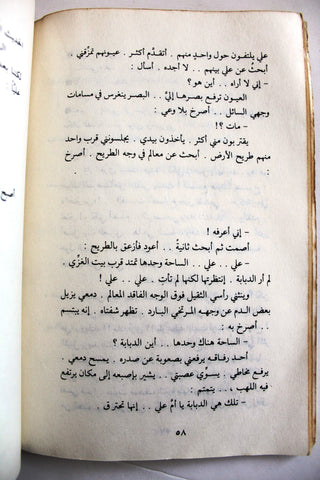 علي يلتفون حول واحدٍ منهم . أتقدّم أكثر . عيونهم تمزّقني .
أبحثُ عن علي بينهم . لا أجده . أسأل :
– إني لا أراه . . أين هو ؟
العيون ترفع بصرها إليَّ . . البصر ينغرس في مسامات
وجهي السائل . . أصرخ بلا وعي :
– مات ؟ !
يقتربون مني أكثر . يأخذون بيدي . يجلسونني قرب واحد
منهم طريح الأرض . أبحث عن معالم في وجه الطريح . أصرخ
:
– إني أعرفه !
أصمت ثم أبحث ثانيةً . . أعود فأزعق بالطريح :
– علي . . علي . . الساحة وحدها تمتد قرب بيت الغزّي .
لم أرَ الدبابة . إنتظرتها لكنها لم تأتِ . علي . . علي !
وينثني رأسي الثقيل فوق الوجه الفاقد المعالم . دمعي يزيل
بعض الدم عن وجهه المرتخي البارد . تظهر شفتاه . إنه يبتسم
. . أصرخ به :
– الساحة هناك وحدها . . أين الدبابة ؟
أحد رفاقه يرفعني بصعوبة عن صدره . يمسح دمعي .
يرفع مخاطي . يسوّي عصبتي . . يشير بإصبعه إلى مكان يرتفع
فيه اللهب . . يتمتم :
– تلك هي الدبابة يا أمُّ علي . . إنها تحترق .
٥٨